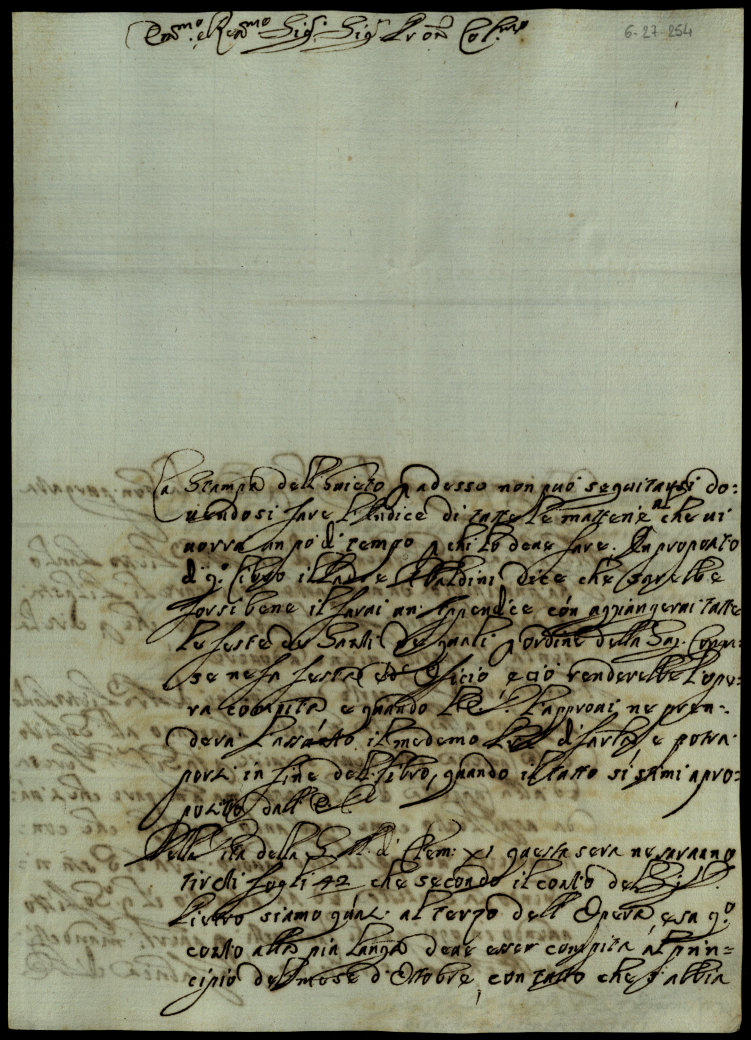 Em.mo e Rev.mo Sig.r Sig.r Pron Col.mo
6-27-254
La Stampa del Suieto p adesso non può seguitarsi do:
uendosi fare l'Indice di tutte le matterie che ui
uorra un pò di tempo p chi lo deue fare. In proposito
di q.o libro il Padre Ubaldini dice che sarebbe
forsi bene il farui un Apendice con aggiungerui tutte
le feste de Santi de quali p ordine della Sag. Congr.
se ne fa festa et Officio e ciò renderebbe l'ope:
ra compita e quando l'approui ne pren:
derà l'assunto il medemo Padre di farla e potra
porsi in fine del libro, quando il tutto si stimi apro:
posito dall' E
Della uita della di Clem: XI questa sera ne saranno
tirati fogli 42 che secondo il conto del Sig.
Pietro siamo quasi al terzo dell'Opera e sa q.o
conto alla più lunga deue esser compita al prin:
cipio del mese d'Ottobre, con tutto che s'abbia